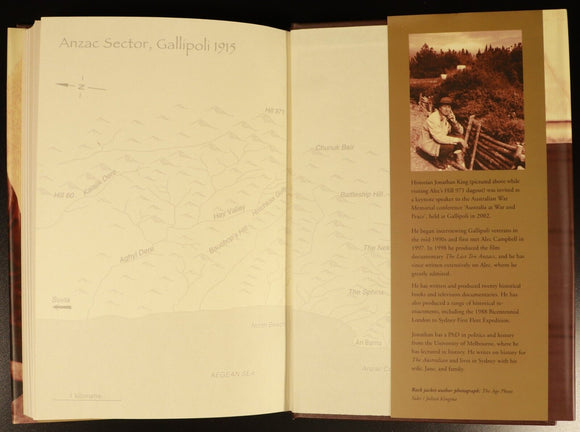 Anzac Sector, Gallipoli 1915
N
Hill 971
Chunuk Bair
Kaiajik Dere
Hill 60
Battleship Hill
Hey Valley
Aghyl Dere
Bauchop's Hill
The Nek
The Sphinx
Suvla
North Beach
Ari Burnu
Anzac Co
AEGEAN SEA
1 kilometre
Historian Jonathan King (pictured above while
visiting Alec's Hill 971 dugout) was invited as
a keynote speaker to the Australian War
Memorial conference 'Australia at War and
Peace', held at Gallipoli in 2002.
He began interviewing Gallipoli veterans in
the mid 1990s and first met Alec Campbell in
1997. In 1998 he produced the film
documentary The Last Ten Anzacs, and he has
since written extensively on Alec, whom he
greatly admired.
He has written and produced twenty historical
books and television documentaries. He has
also produced a range of historical re-
enactments, including the 1988 Bicentennial
London to Sydney First Fleet Expedition.
Jonathan has a PhD in politics and history
from the University of Melbourne, where he
has lectured in history. He writes on history for
The Australian and lives in Sydney with his
wife, Jane, and family.
Back jacket author photograph: The Age Photo
Sales / Julian Kingma